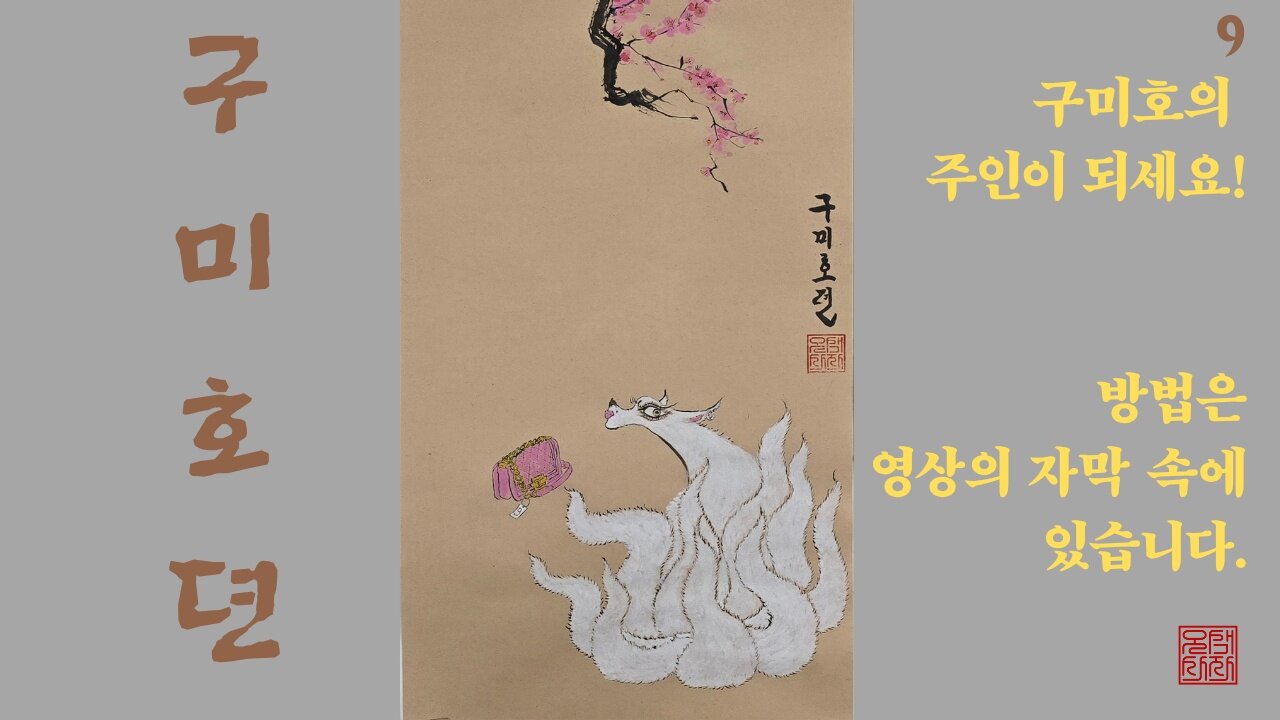 구미호뎐
9
구미호의
주인이 되세요!
방법은
영상의 자막 속에
있습니다.
구미호뎐